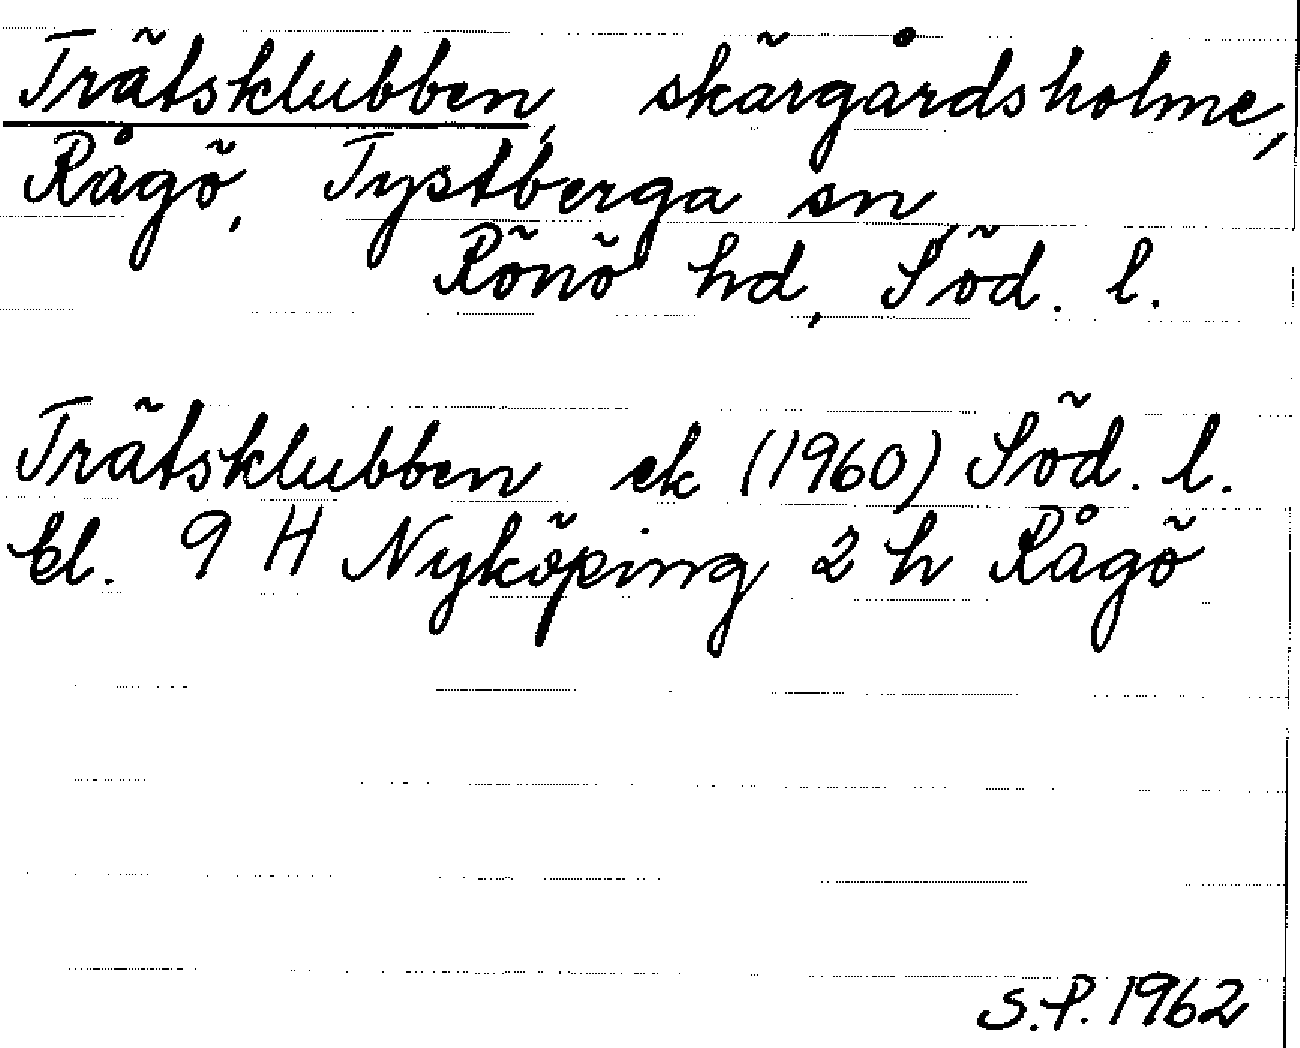 Trätsklubben, skärgårdsholme,
Rågö, Tystberga sn,
Rönö hd, Söd. l.
Trätsklubben ek (1960) Söd. l.
bl. 9 H Nyköping 2 h Rågö
S.P. 1962